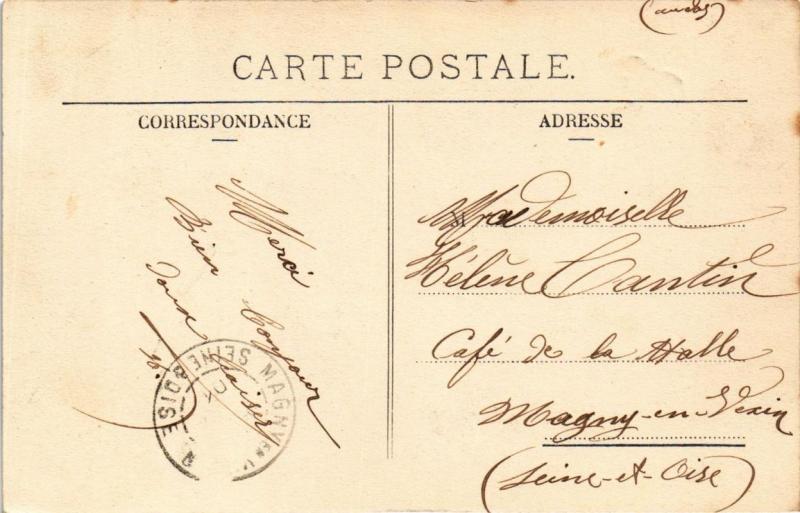 CARTE POSTALE.
CORRESPONDANCE
ADRESSE
Merci
Bonjour
Bien
doux
baiser
Mademoiselle
Hélène Cantin
Café de la Halle
Magny-en-Vexin
(Seine-et-Oise)
MAGNY EN V
SEINE
OISE